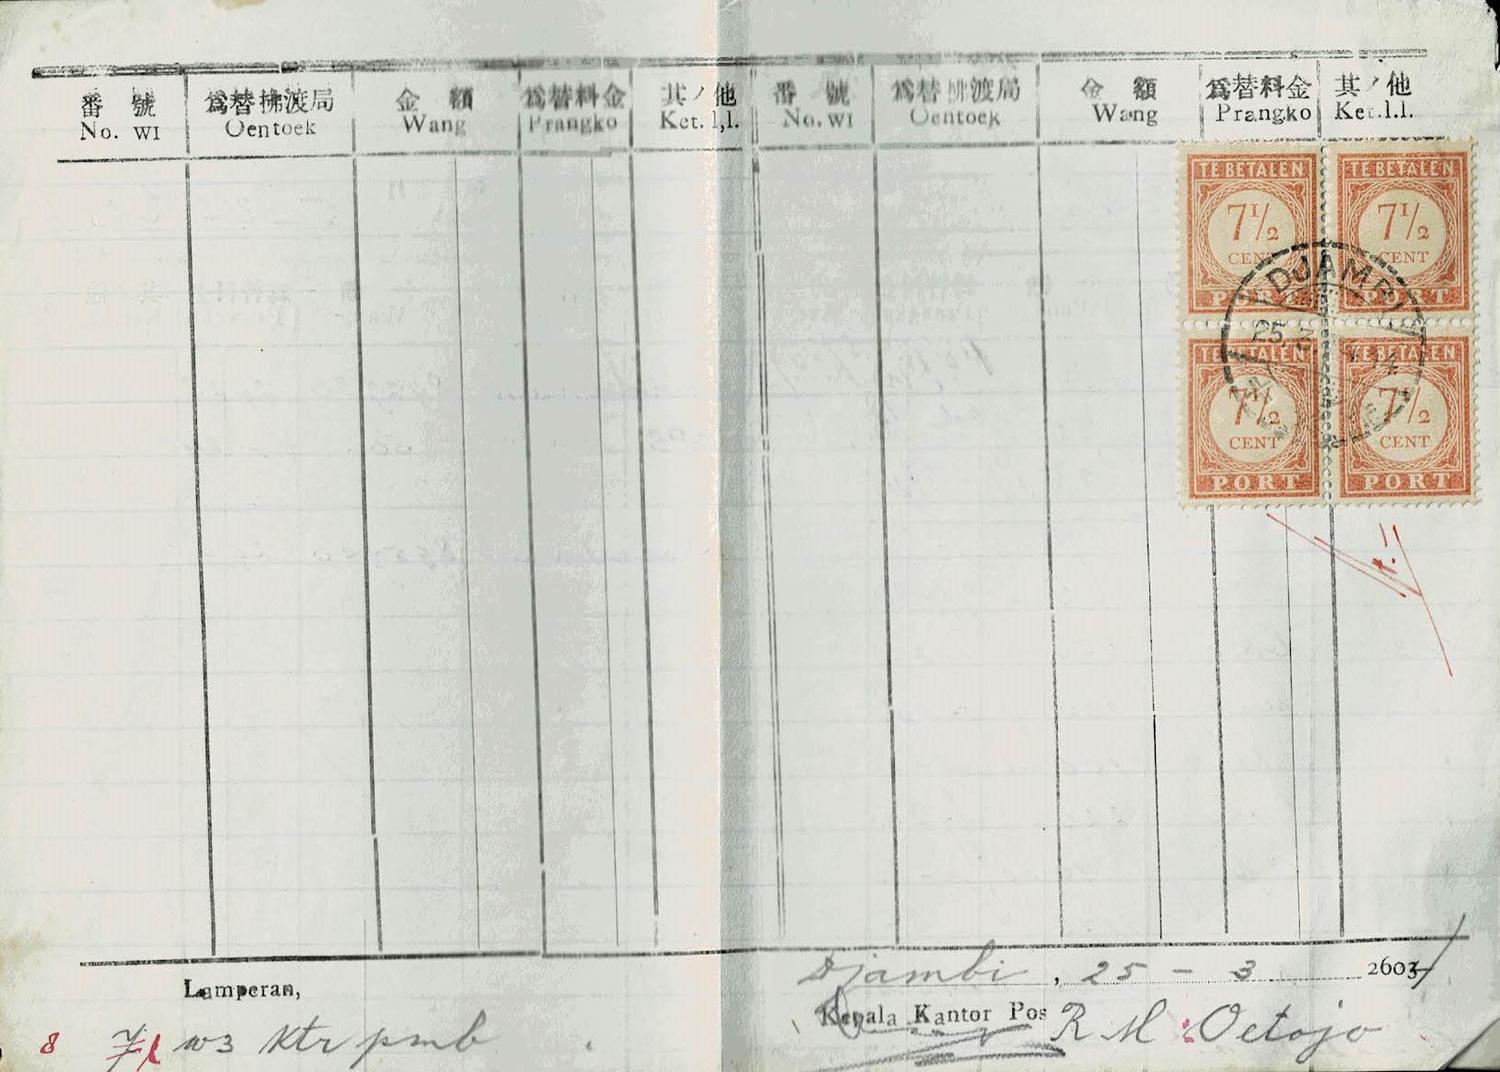 番 號 爲替拂渡局 金 額 爲替料金 其ノ他 番 號 爲替拂渡局 金 額 爲替料金 其ノ他
No. WI Oentoek Wang Prangko Ket. l,l. No. WI Oentoek Wang Prangko Ket.l.l.
TE BETALEN TE BETALEN
7½ 7½
CENT CENT
PORT PORT
DJAMBI
25. 3
TE BETALEN TE BETALEN
7½ 7½
CENT CENT
PORT PORT
Djambi, 25 - 3 2603
Lamperan,
Kepala Kantor Pos
R M: Oetojo
8 w3 Ktr pmb